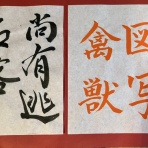 図写
禽獣
尚有逃